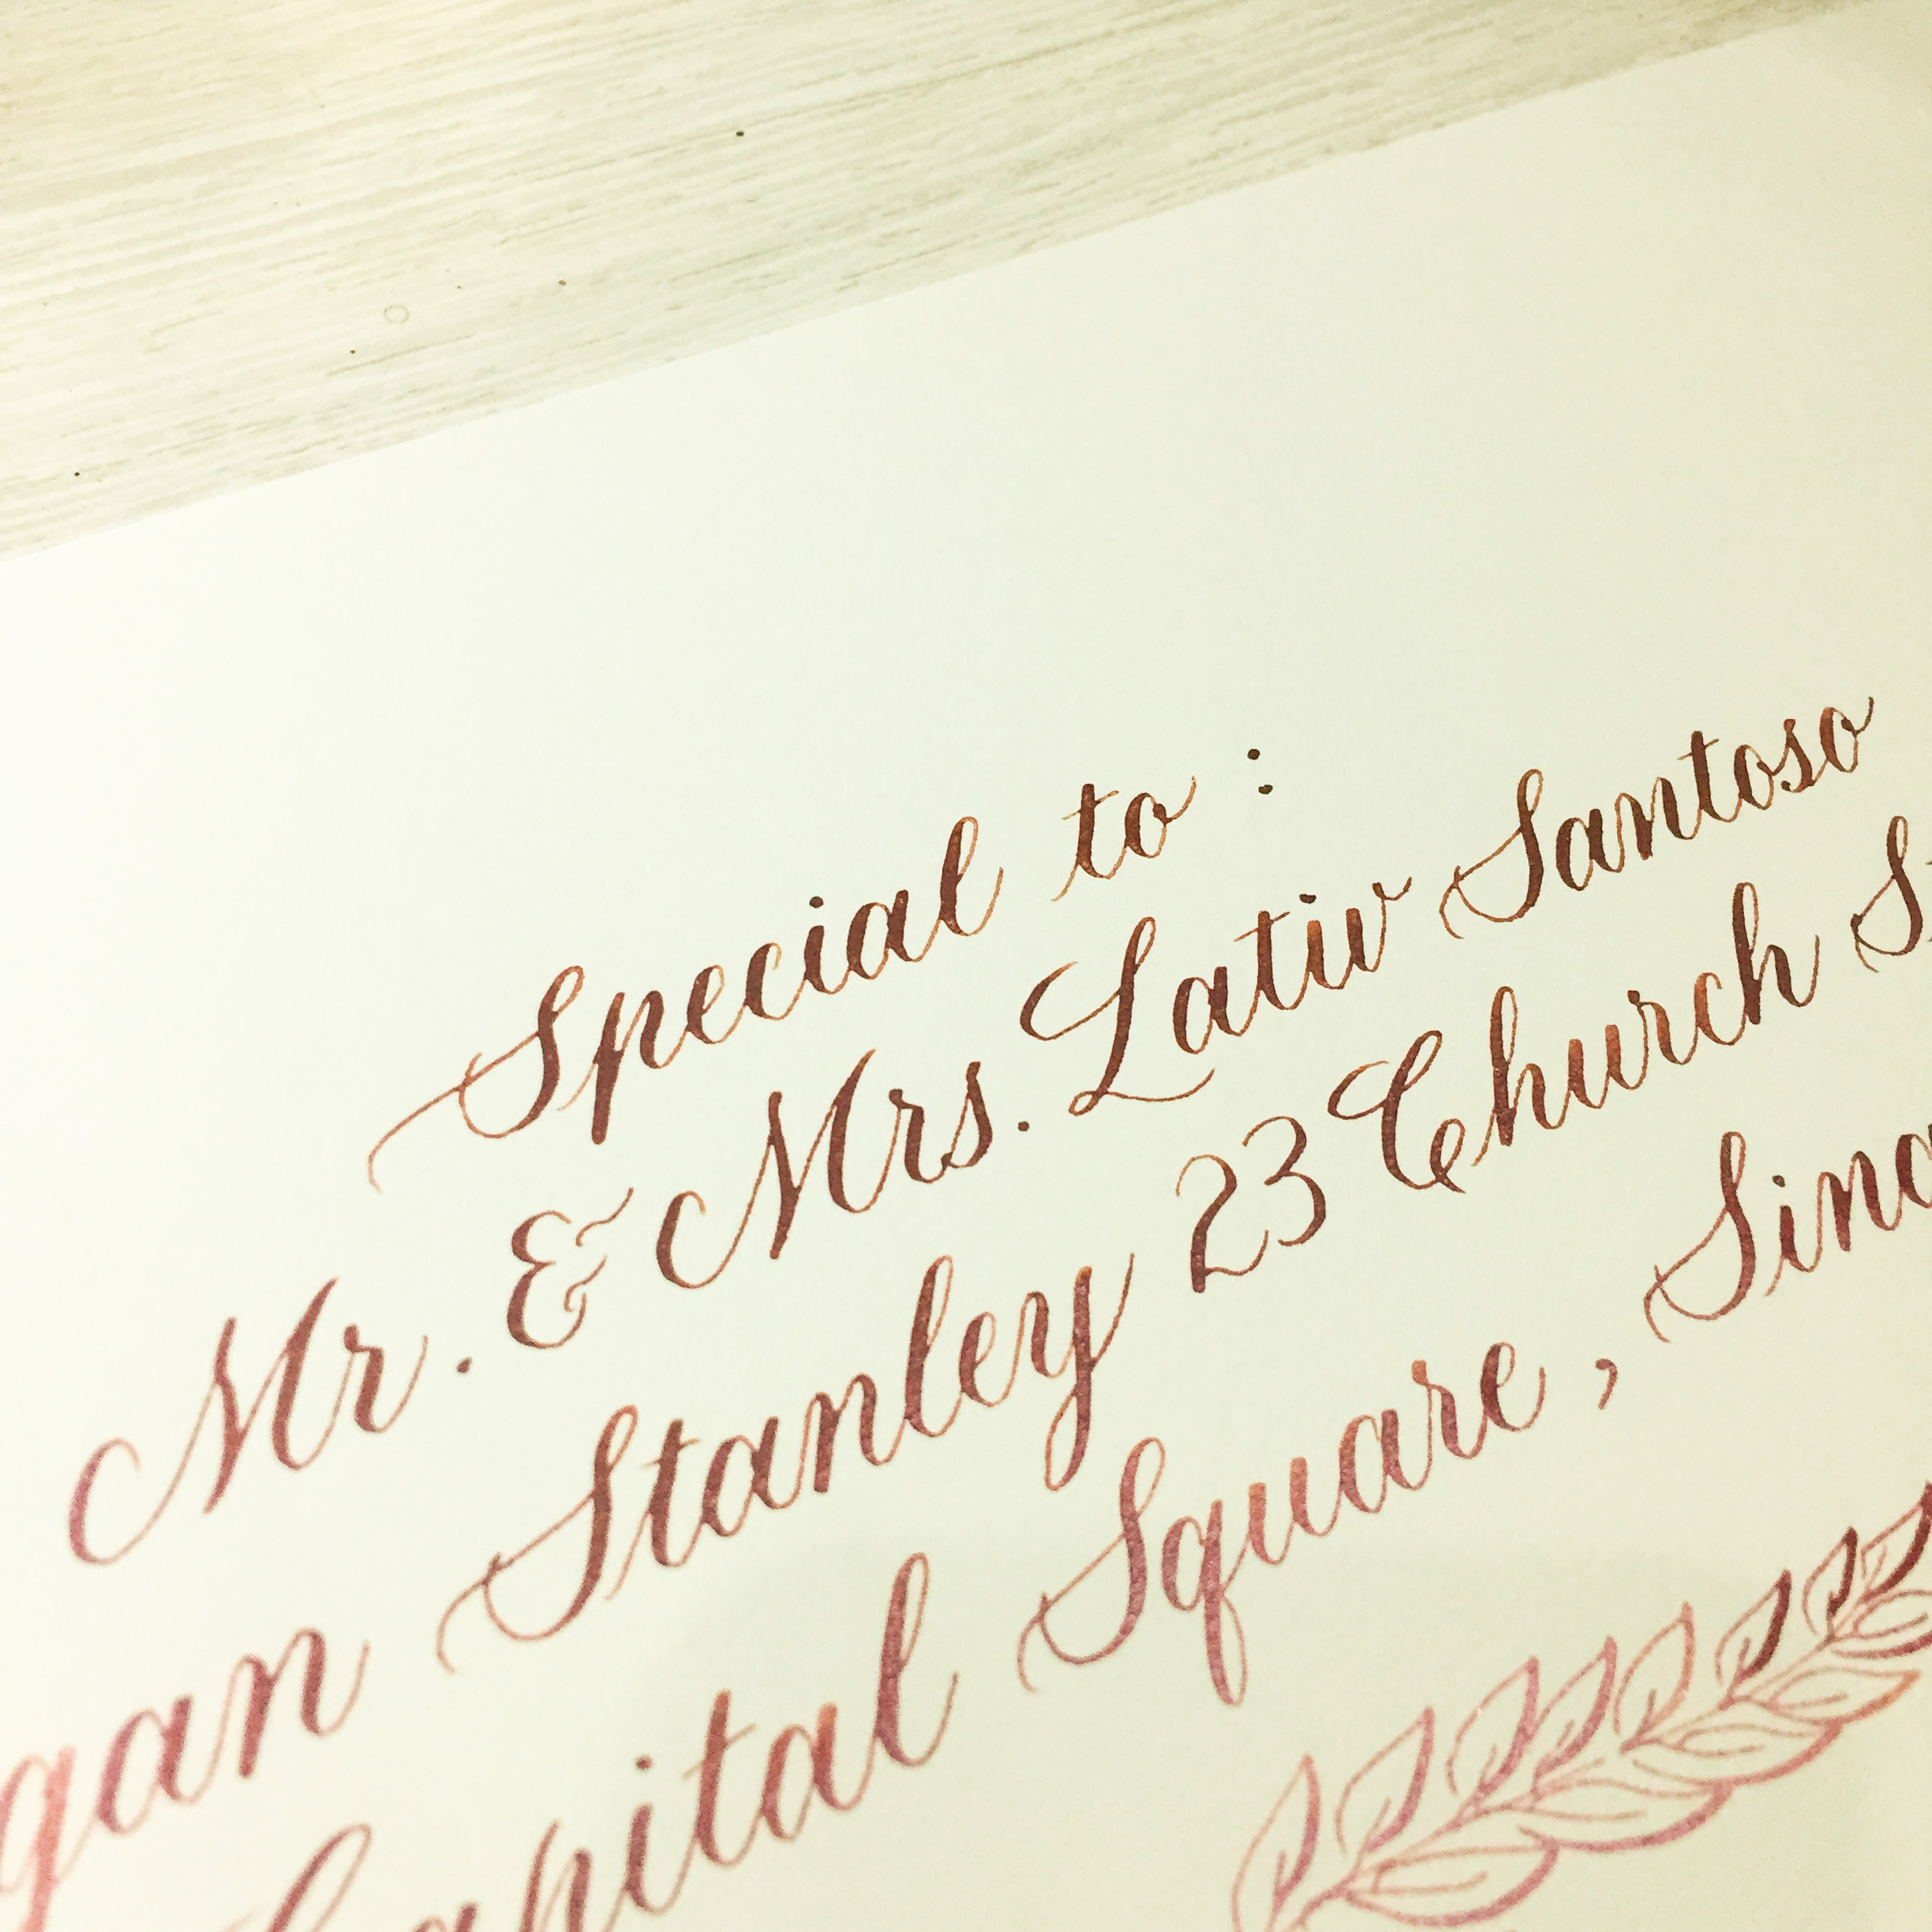 Special to :
Mr. & Mrs. Lativ Santoso
Stanley 23 Church
Capital Square ,